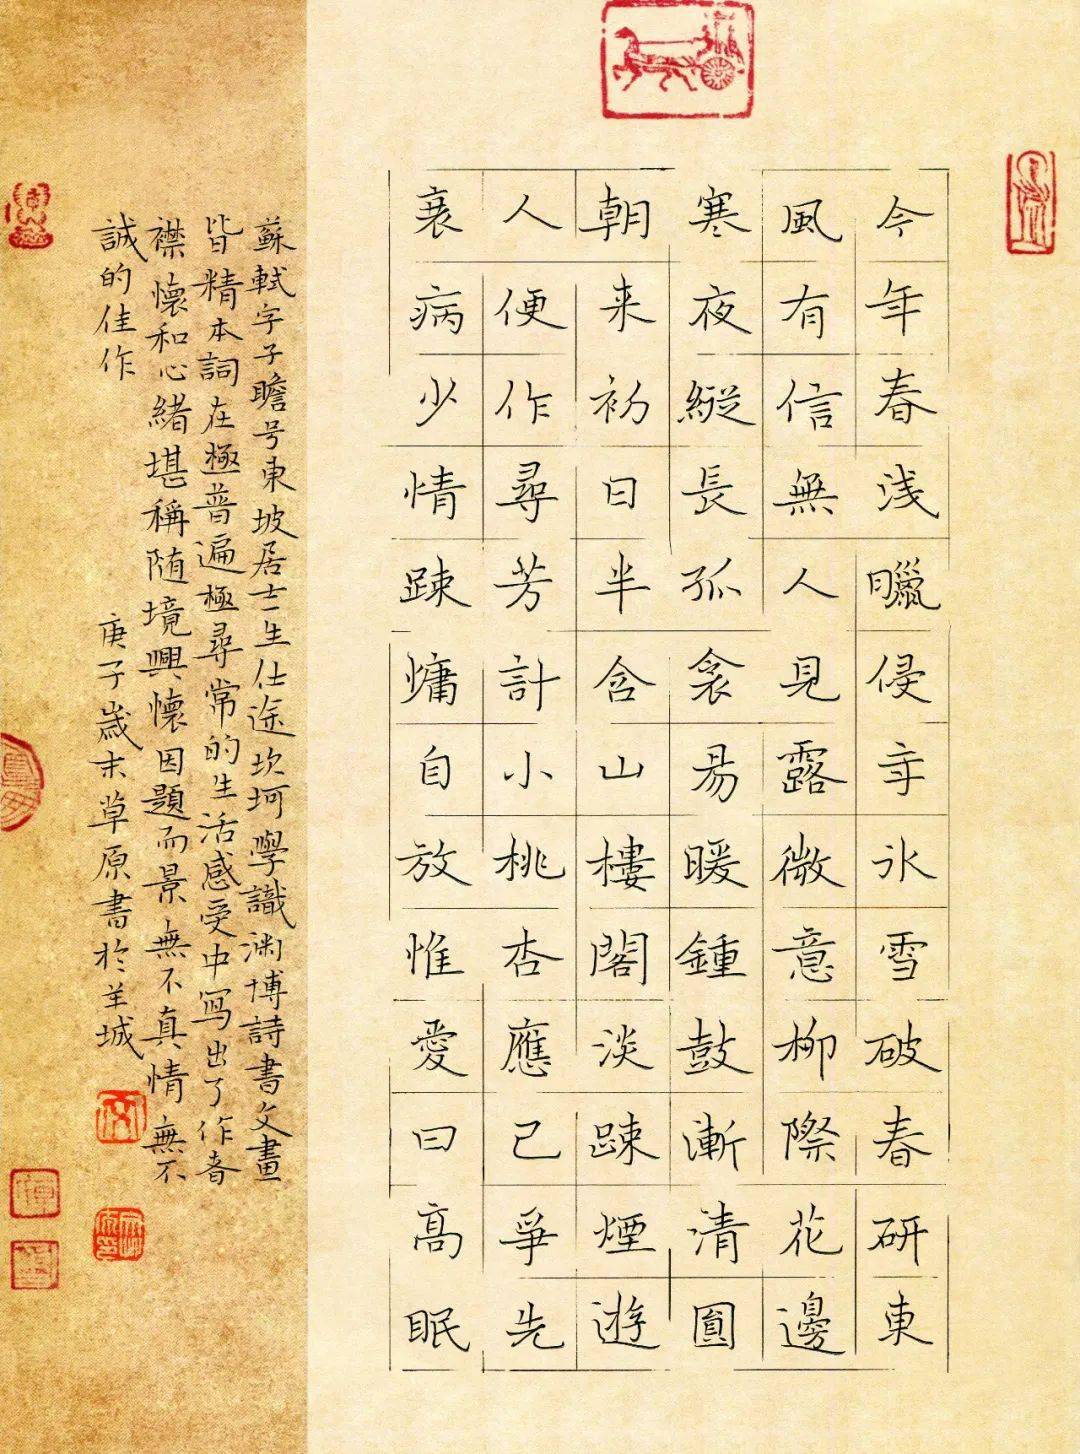 今年春浅臘侵年氷雪破春研東
風有信無人見露微意柳際花邊
寒夜縱長孤衾易暖鍾鼓漸清圓
朝来初日半含山樓閣淡踈煙遊
人便作尋芳計小桃杏應已爭先
衰病少情踈慵自放惟愛日高眠
蘇軾字子瞻号東坡居士一生仕途坎坷學識渊博詩書文畫
皆精本詞在極普遍極尋常的生活感受中寫出了作者
襟懷和心緒堪稱随境興懷因題而景無不真情無不
誠的佳作 庚子歲末草原書於羊城